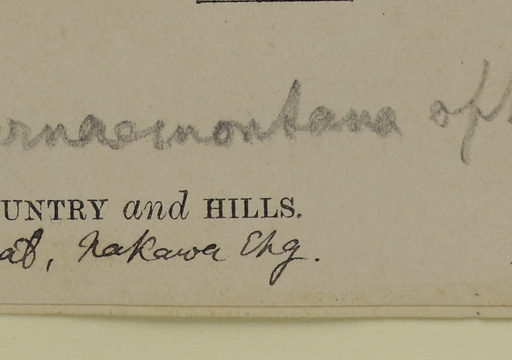 ernaemontana
UNTRY and HILLS.
at, Nakawa Chg.